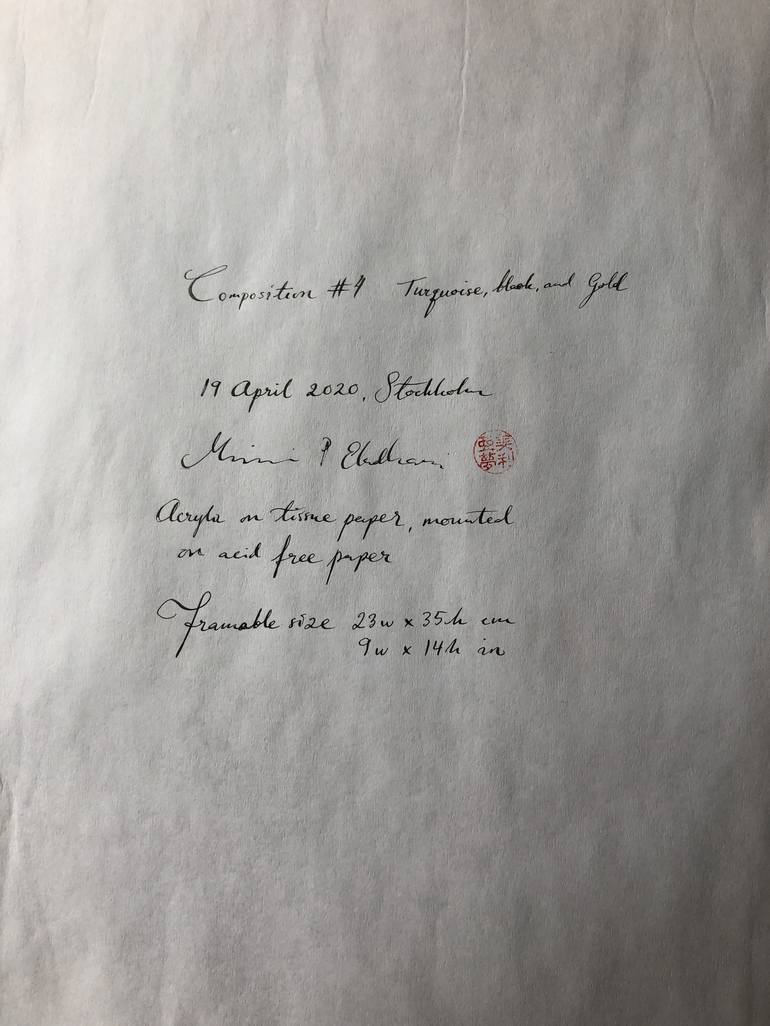 Composition #4 Turquoise, black, and Gold
19 April 2020, Stockholm
Mimi P
Acrylic on tissue paper, mounted
on acid free paper
Framable size 23w x 35h cm
9w x 14h in